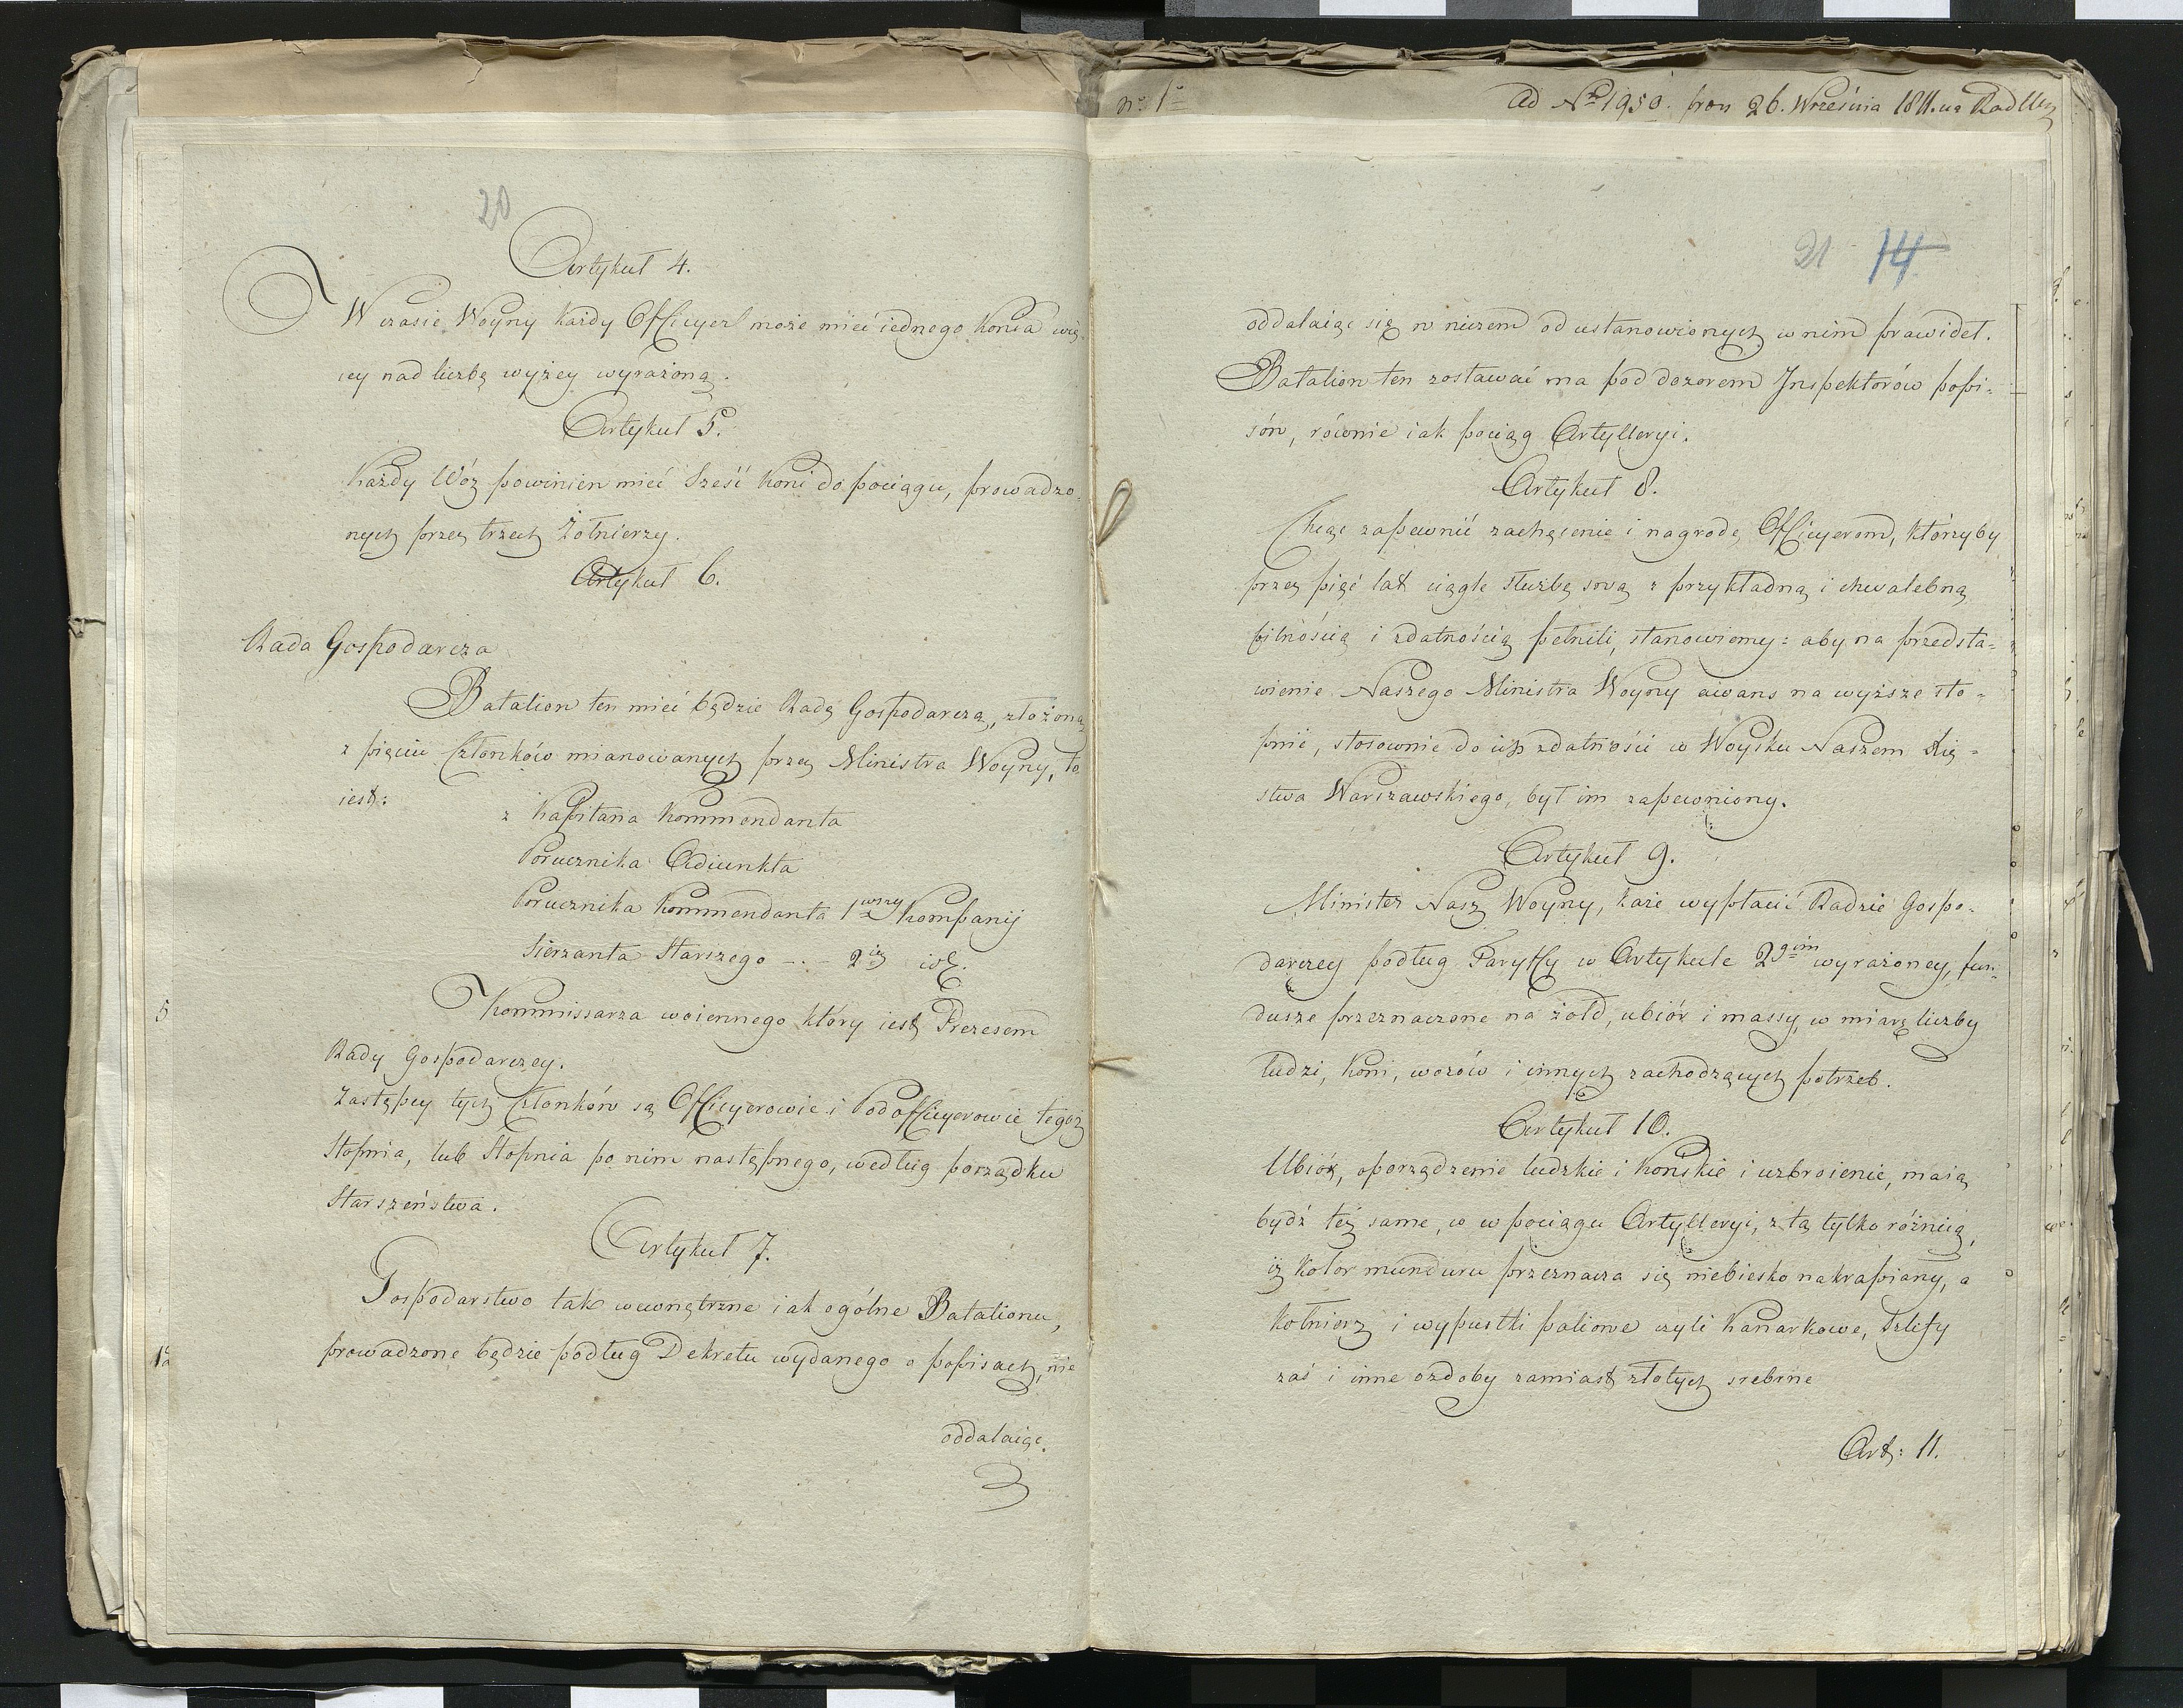 20
Artykuł 4.
W czasie Woyny każdy Officyer może mieć iednego konia wię-
cey nad liczbę wyżey wyrażoną.
Artykuł 5.
Każdy Wóz powinien mieć sześć koni do pociągu, prowadzo-
nych przez trzech Żołnierzy.
Artykuł 6.
Rada Gospodarcza
Batalion ten mieć będzie Radę Gospodarczą, złożoną
z pięciu Członków mianowanych przez Ministra Woyny, to
iest:
z Kapitana Kommendanta
Porucznika Adiunkta
Porucznika Kommendanta 1wszy Kompanij
Sierżanta Starszego - . - 2iey id.
5
Kommissarza woiennego który iest Prezesem
Rady Gospodarczey.
Zastępcy tych Członków są Officyerowie i Podofficyerowie tegoż
Stopnia, lub Stopnia po nim następnego, według porządku
Starszeństwa.
Artykuł 7.
Gospodarstwo tak wewnętrzne iak ogólne Batalionu,
prowadzone będzie podług Dekretu wydanego o popisach, nie
oddalaiąc.
No 1o
Ad No 1950. pron 26. Września 1811.
21 14
oddalaiąc się w niczem od ustanowionych w nim prawideł.
Batalion ten zostawać ma pod dozorem Inspektorów popi-
sów, równie iak pociąg Artylleryi.
Artykuł 8.
Chcąc zapewnić zachęcenie i nagrodę Officyerom, którzyby
przez pięć lat ciągle służbę swą z przykładną i chwalebną
pilnością i zdatnością pełnili, stanowiemy: aby na przedsta-
wienie Naszego Ministra Woyny awans na wyższe sto-
pnie, stosownie do ich zdatności w Woysku Naszem Xię-
stwa Warszawskiego, był im zapewniony.
Artykuł 9.
Minister Nasz Woyny, każe wypłacić Radzie Gospo-
darczey podług Taryffy w Artykule 2gim wyrażoney, fun-
dusze przeznaczone na żołd, ubiór i massy, w miarę liczby
ludzi, koni, wozów i innych zachodzących potrzeb.
Artykuł 10.
Ubiór, oporządzenie ludzkie i końskie i uzbroienie, maią
bydź też same, co w pociągu Artylleryi, z tą tylko różnicą,
iż kolor munduru przeznacza się niebiesko nakrapiany, a
kołnierz i wypustki paliowe czyli kanarkowe, Szlify
zaś i inne ozdoby zamiast złotych srebrne
Art: 11.